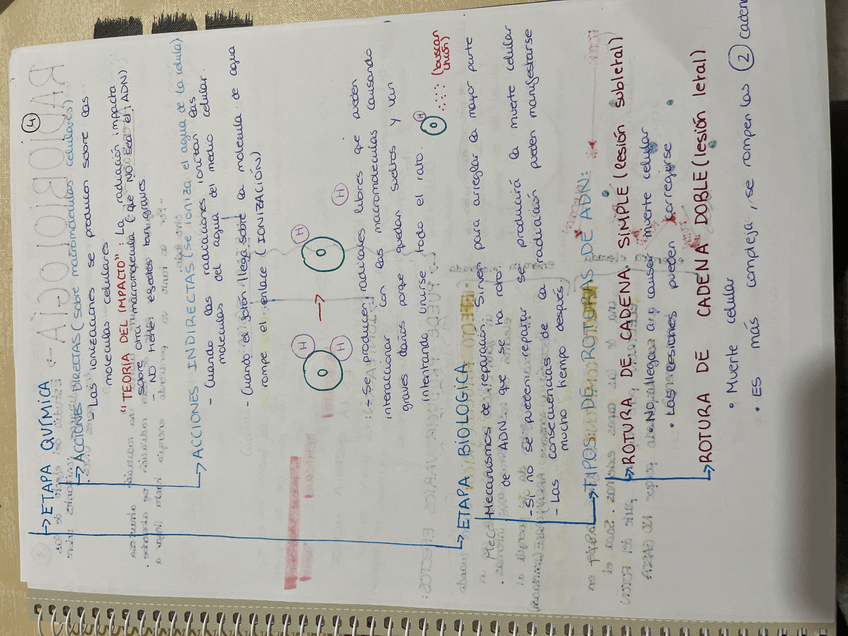 ④
→ ETAPA QUÍMICA
→ ACCIONES DIRECTAS (sobre macromoléculas celulares)
Las ionizaciones se producen sobre las
moléculas celulares
"TEORIA DEL IMPACTO": La radiación impacta
sobre otra macromolécula (que NO sea el ADN)
- NO tienen efectos tan graves
→ ACCIONES INDIRECTAS (se ioniza el agua de la célula)
- Cuando las radiaciones ionizan las
moléculas del agua del medio celular.
- Cuando el fotón llega sobre la molécula de agua
rompe el enlace (IONIZACIÓN)
H O H → O H H
- Se producen radicales libres que pueden
interaccionar con las macromoléculas causando
graves daños porque quedan sueltos y van
intentando unirse todo el rato. O H (buscan
unión)
→ ETAPA BIOLOGICA
- Mecanismos de reparación. Sirven para arreglar la mayor parte
de ADN que se ha roto.
- Si no se pueden reparar se producirá la muerte celular
- Las consecuencias de la radiación pueden manifestarse
mucho tiempo después.
→ TIPOS DE ROTURAS DE ADN:
→ ROTURA DE CADENA SIMPLE (lesión subletal)
• No llegan a causar muerte celular
• Las lesiones pueden corregirse
→ ROTURA DE CADENA DOBLE (lesión letal)
• Muerte celular
• Es más compleja, se rompen las ② caden